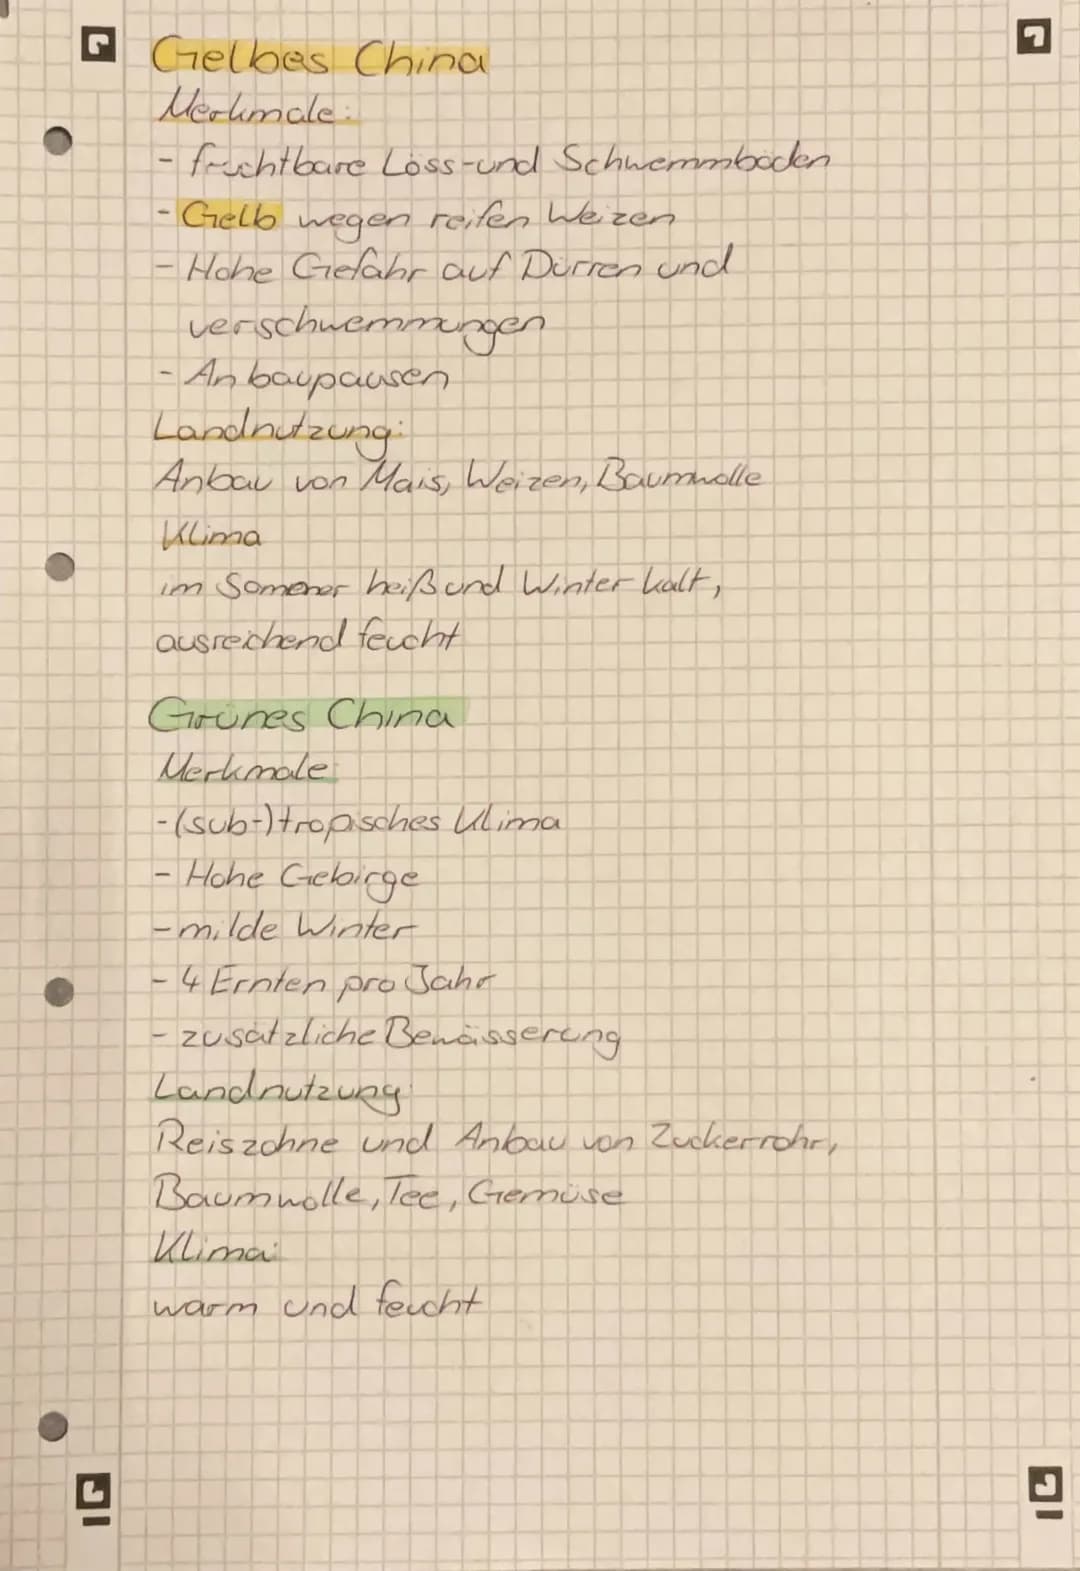 Gelbes China
Merkmale:
- fruchtbare Löss-und Schwemmböden
- Gelb wegen reifen Weizen
- Hohe Gefahr auf Dürren und
verschwemmungen
- Anbaupausen
Landnutzung:
Anbau von Mais, Weizen, Baumwolle
Klima
im Sommer heiß und Winter kalt,
ausreichend feucht
Grünes China
Merkmale:
-(sub-)tropisches Klima
- Hohe Gebirge
- milde Winter
- 4 Ernten pro Jahr
- zusätzliche Bewässerung
Landnutzung:
Reiszohne und Anbau von Zuckerrohr,
Baumwolle, Tee, Gemüse
Klima:
warm und feucht